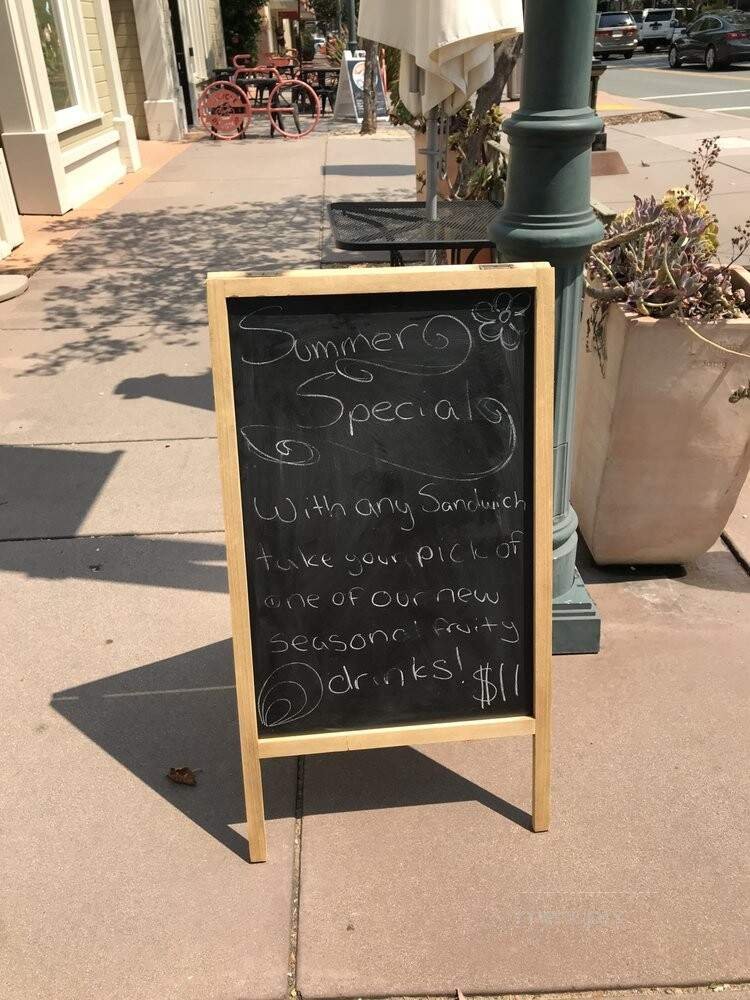 Summer
Special
With any Sandwich
take your pick of
one of our new
seasonal fruity
drinks! $11